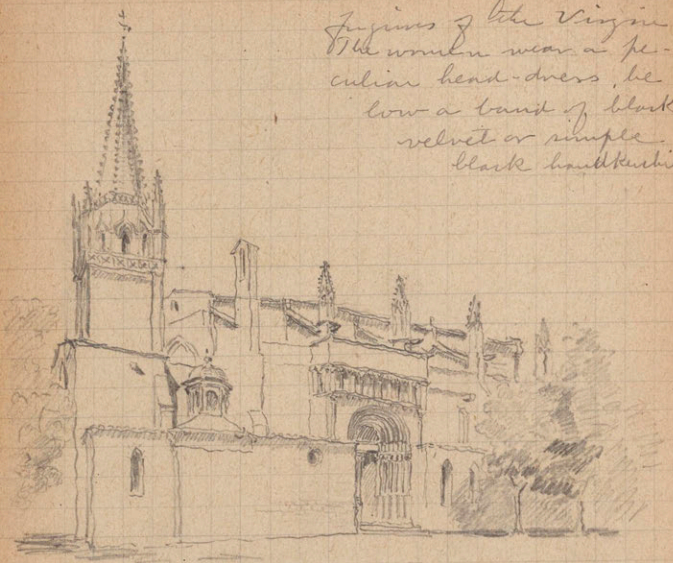 figures of the Virgin
The women wear a pe-
culiar head-dress, be
low a band of black
velvet or simple
black handkerchi